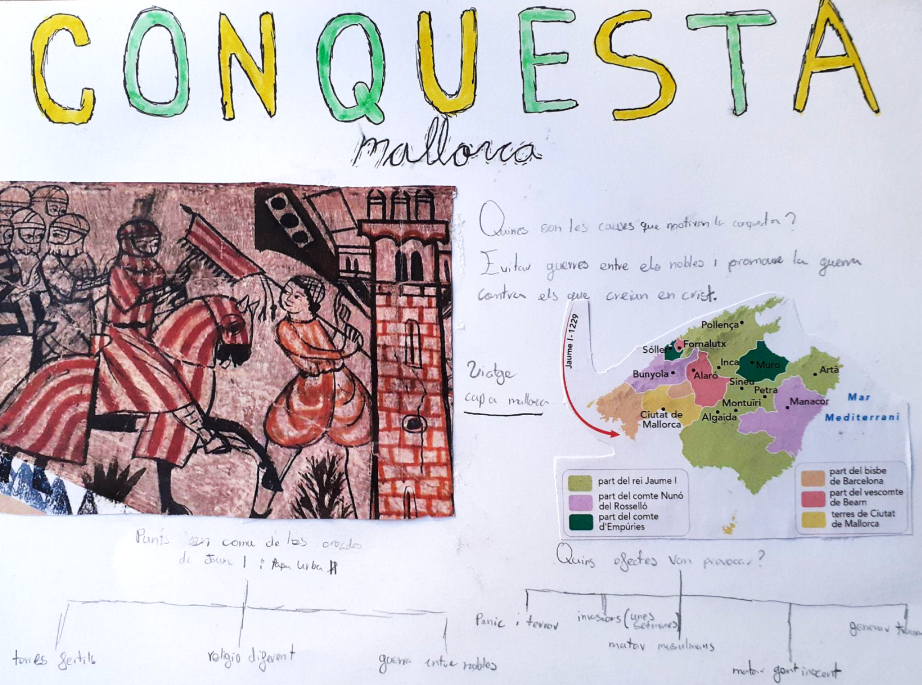 CONQUESTA
mallorca
Quines son les causes que motivan la conquesta?
Evitar guerres entre els nobles i promoure la guerra
contra els que creian en crist.
Viatge
cap a mallorca
Jaume I - 1229
Pollença
Sóller
Fornalutx
Inca
Muro
Bunyola
Alaró
Artà
Sineu
Petra
Montuïri
Manacor
Ciutat de
Mallorca
Algaida
Mar
Mediterrani
part del rei Jaume I
part del comte Nunó
del Rosselló
part del comte
d'Empúries
part del bisbe
de Barcelona
part del vescomte
de Bearn
terres de Ciutat
de Mallorca
Punts en comu de les
de Jaume I i Papa Urba II
torres fertils
religio diferent
guerra entre nobles
Quins efectes van provocar?
Panic i terror
invasions (unes
setmanes)
matar musulmans
matar gent inocent
generar